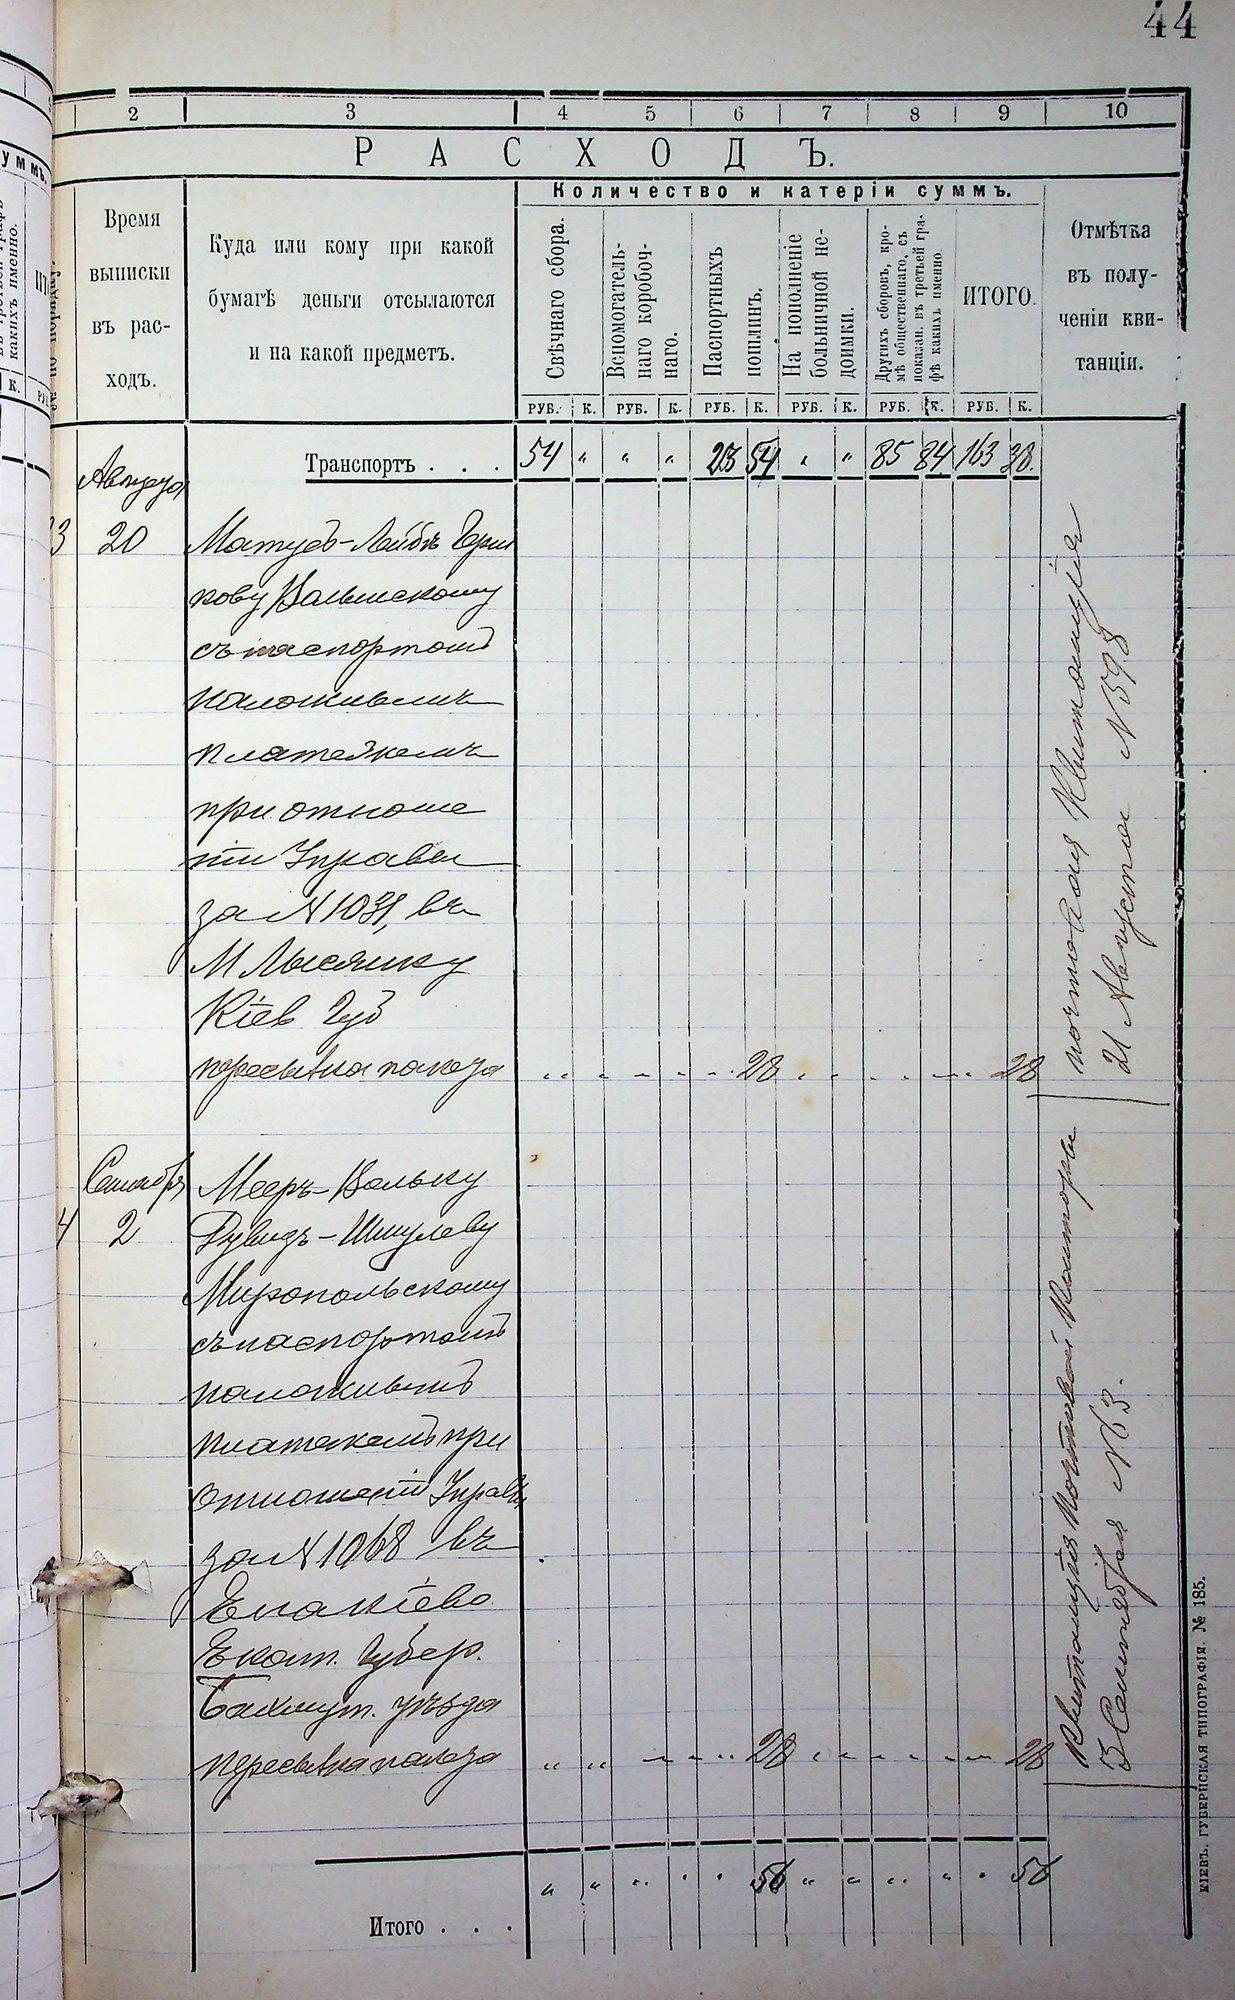 44
2 3 4 5 6 7 8 9 10
РАСХОДЪ.
Количество и катеріи суммъ.
Время
выписки
въ рас-
ходъ.
Куда или кому при какой
бумагѣ деньги отсылаются
и на какой предметъ.
Свѣчнаго сбора.
Вспомогатель-
наго коробоч-
наго.
Паспортныхъ
пошлинъ.
На пополненіе
больничной не-
доимки.
Другихъ сборовъ, кро-
мѣ общественнаго, съ
показан. въ третьей гра-
фѣ какихъ именно.
ИТОГО.
Отмѣтка
въ полу-
ченіи кви-
танціи.
РУБ. К. РУБ. К. РУБ. К. РУБ. К. РУБ. К. РУБ. К.
Транспортъ . . . 54 „ „ „ 23 54 „ „ 85 84 163 38.
Августа
3 20 Матусъ-Лейбѣ
кову
съ паспортомъ
наложнымъ
платежемъ
при отноше
ніи Управы
за № 1031, въ
М Лысянку
Кіев Губ
пересылка паке̃та 28 28
почтовая Квитанція
21 Августа № 598
Сентября
4 2 Мееръ-Вольку
Дувидъ-Шмулеву
Миропольскому
съ паспортомъ
наложнымъ
платежемъ при
отношеніи Управы
за № 1068 въ
Енакіево
Екат. Губер.
Бахмут. уѣзда
пересылка пакета 28 28
Квитанція Почтовой Конторы
3 Сентября № 63.
„ „ „ „ „ 56 „ „ „ „ „ 56
Итого . . .
КІЕВЪ. ГУБЕРНСКАЯ ТИПОГРАФІЯ. № 185.